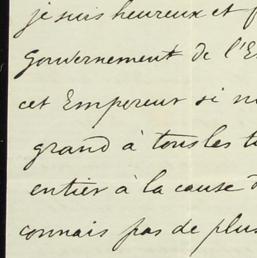 je suis heureux et f
Gouvernement de l'E
cet Empereur si n
grand à tous les t
entier à la cause d
connais pas de plus